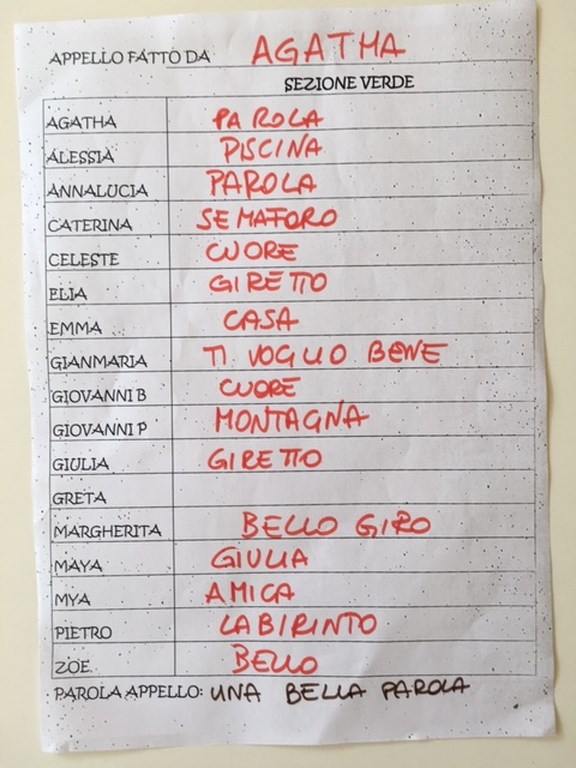 APPELLO FATTO DA AGATHA
SEZIONE VERDE
AGATHA PAROLA
ALESSIA PISCINA
ANNALUCIA PAROLA
CATERINA SEMAFORO
CELESTE CUORE
ELIA GIRETTO
EMMA CASA
GIANMARIA TI VOGLIO BENE
GIOVANNI B CUORE
GIOVANNI P MONTAGNA
GIULIA GIRETTO
GRETA
MARGHERITA BELLO GIRO
MAYA GIULIA
MYA AMICA
PIETRO LABIRINTO
ZOE BELLO
PAROLA APPELLO: UNA BELLA PAROLA